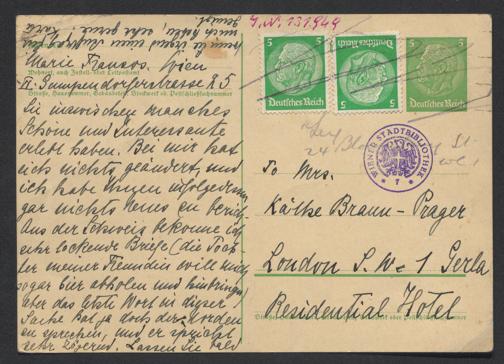 J.N. 131949
Marie Franzos, Wien
Wohnort, auch Zustell- oder Leitpostamt
VI. Gumpendorferstrasse 25
Straße, Hausnummer, Gebäudeteil, Stockwerk od. Postschließfachnummer
Sie inzwischen manches
Schöne und Interessante
erlebt haben. Bei mir hat
sich nichts geändert, und
ich habe Ihnen infolgedessen
gar nichts Neues zu
Aus der Schweiz bekomme ich
sehr lockende Briefe (die Toch-
ter meiner Freundin will mich
sogar hier abholen und hinbringen
aber das letzte Wort in dieser
Sache hat ja doch der
zu sprechen, und er spricht
sehr zögernd. Lassen Sie bald
5 5
Deutsches Reich
5 5
Deutsches Reich
5 5
Deutsches Reich
WIENER STADTBIBLIOTHEK
* 7 *
To Mrs.
Käthe Braun-Prager
London S.W.1 Gerla
Residential Hotel